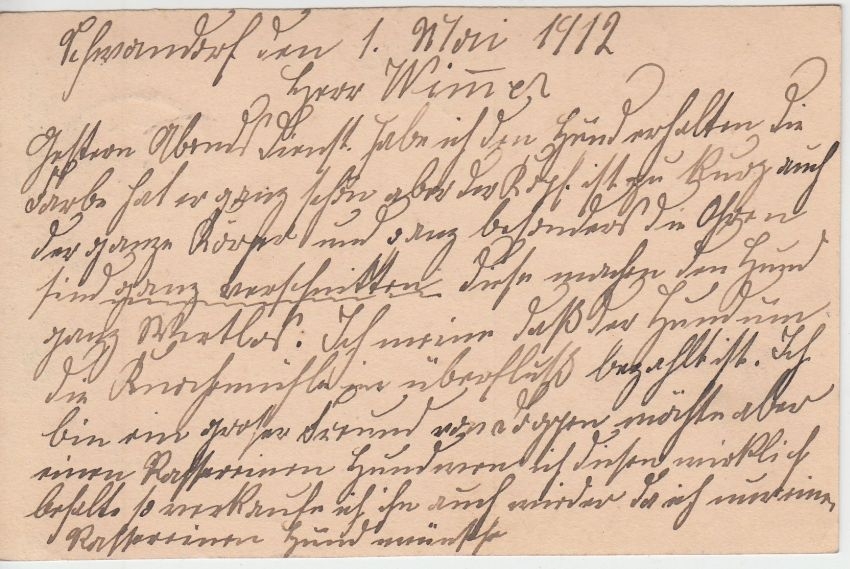 Schwandorf den 1. Mai 1912
Herr Wimmer
Gestern Abends Dienst. habe ich den Hund erhalten die
Farbe hat er ganz schön aber der Kopf ist zu kurz auch
der ganze Körper und ganz besonders die Ohren
sind ganz verschnitten diese machen den Hund
ganz Wertlos. Ich meine daß der Hund um
die überfluß bezahlt ist. Ich
bin ein großer Freund von Doggen möchte aber
einen Rassereinen Hund wen ich diesen wirklich
behalte so verkaufe ich ihn auch wieder da ich nur einen
Rassereinen Hund wünsche